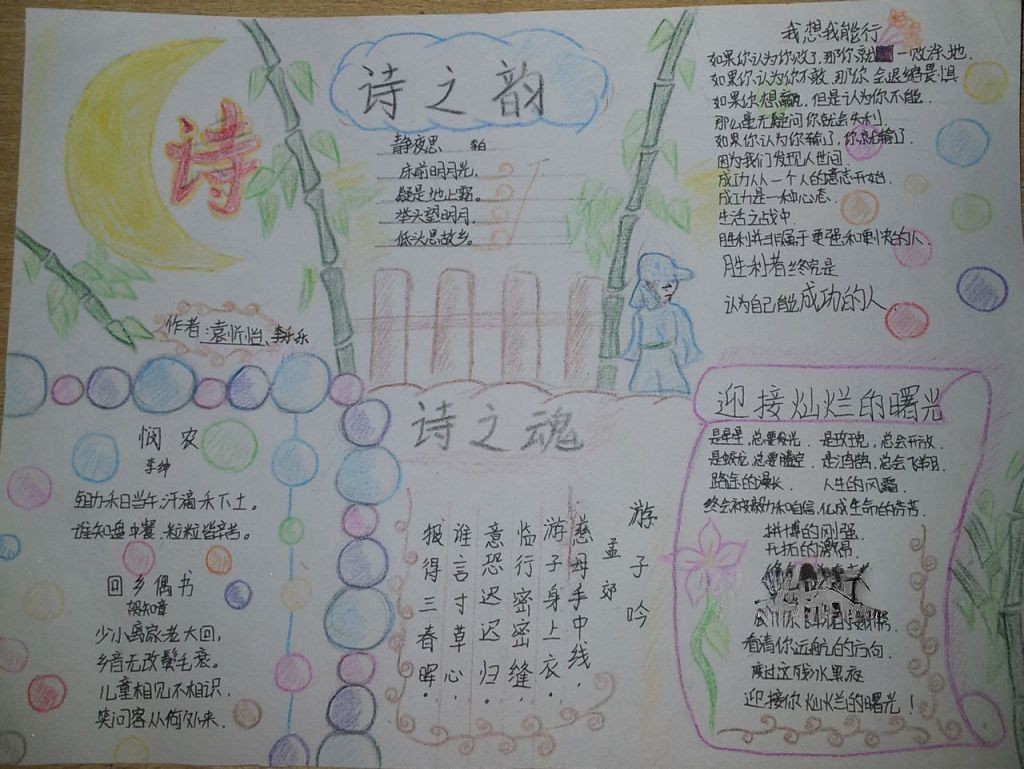 诗
作者:袁忻怡、李乐乐
诗之韵
静夜思 李白
床前明月光,
疑是地上霜。
举头望明月,
低头思故乡。
我想我能行
如果你认为你败了,那你就 一败涂地.
如果你认为你不敢,那你会退缩畏惧
如果你想赢,但是认为你不能.
那么毫无疑问你就会失利.
如果你认为你输了,你就输了
因为我们发现人世间.
成功从一个人的意志开始.
成功是一种心态.
生活之战中.
胜利并非属于更强和更快的人.
胜利者终究是
认为自己能成功的人
悯农
李绅
锄禾日当午,汗滴禾下土。
谁知盘中餐,粒粒皆辛苦。
回乡偶书
贺知章
少小离家老大回,
乡音无改鬓毛衰。
儿童相见不相识,
笑问客从何处来.
诗之魂
游子吟
孟郊
慈母手中线,
游子身上衣.
临行密密缝
意恐迟迟归.
谁言寸草心,
报得三春晖.
迎接灿烂的曙光
是星星,总要发光. 是玫瑰,总会开放.
是蛟龙,总要腾空. 是鸿鹄,总会飞翔.
路途的漫长. 人生的风霜.
终会被毅力和自信,化成生命的芬芳.
拼搏的刚强.
开拓的激昂.
看清你远航的方向.
度过这残冰黑夜
迎接你灿烂的曙光!